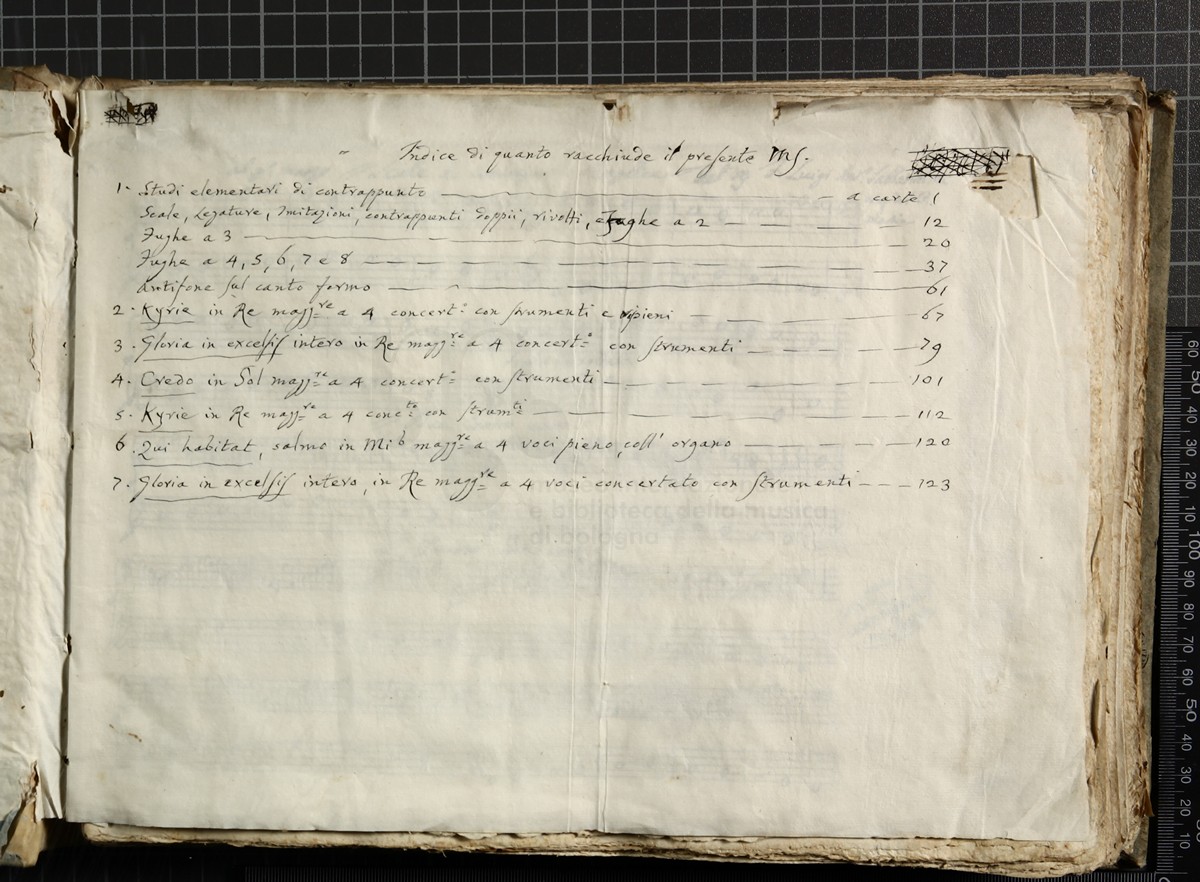 Indice di quanto racchiude il presente MS.
1. Studi elementari di contrappunto — a carte 1
Scale, Legature, Imitazioni, contrappunti doppii, rivolti, e Fughe a 2 — 12
Fughe a 3 — 20
Fughe a 4, 5, 6, 7 e 8 — 37
Antifone sul canto fermo — 61
2. Kyrie in Re magg.re a 4 concert.o con strumenti e ripieni — 67
3. Gloria in excelsis intero in Re magg.re a 4 concert.o con strumenti — 79
4. Credo in Sol magg.re a 4 concert.o con strumenti — 101
5. Kyrie in Re magg.re a 4 conc.to con strum.ti — 112
6. Qui habitat, salmo in Mi b magg.re a 4 voci pieno, coll' organo — 120
7. Gloria in excelsis intero, in Re magg.re a 4 voci concertato con strumenti — 123
e biblioteca della musica
di bologna
60 50 40 30 20 10 100 90 80 70 60 50 40 30 20 10